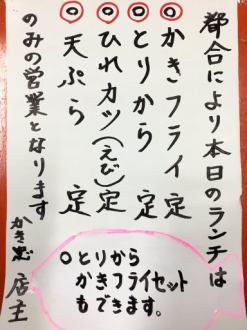 都合により本日のランチは
◎かきフライ定
◎とりから定
◎ひれカツ(えび)定
◎天ぷら定
のみの営業となります
かき忠 店主
◎とりから
かきフライセット
もできます。